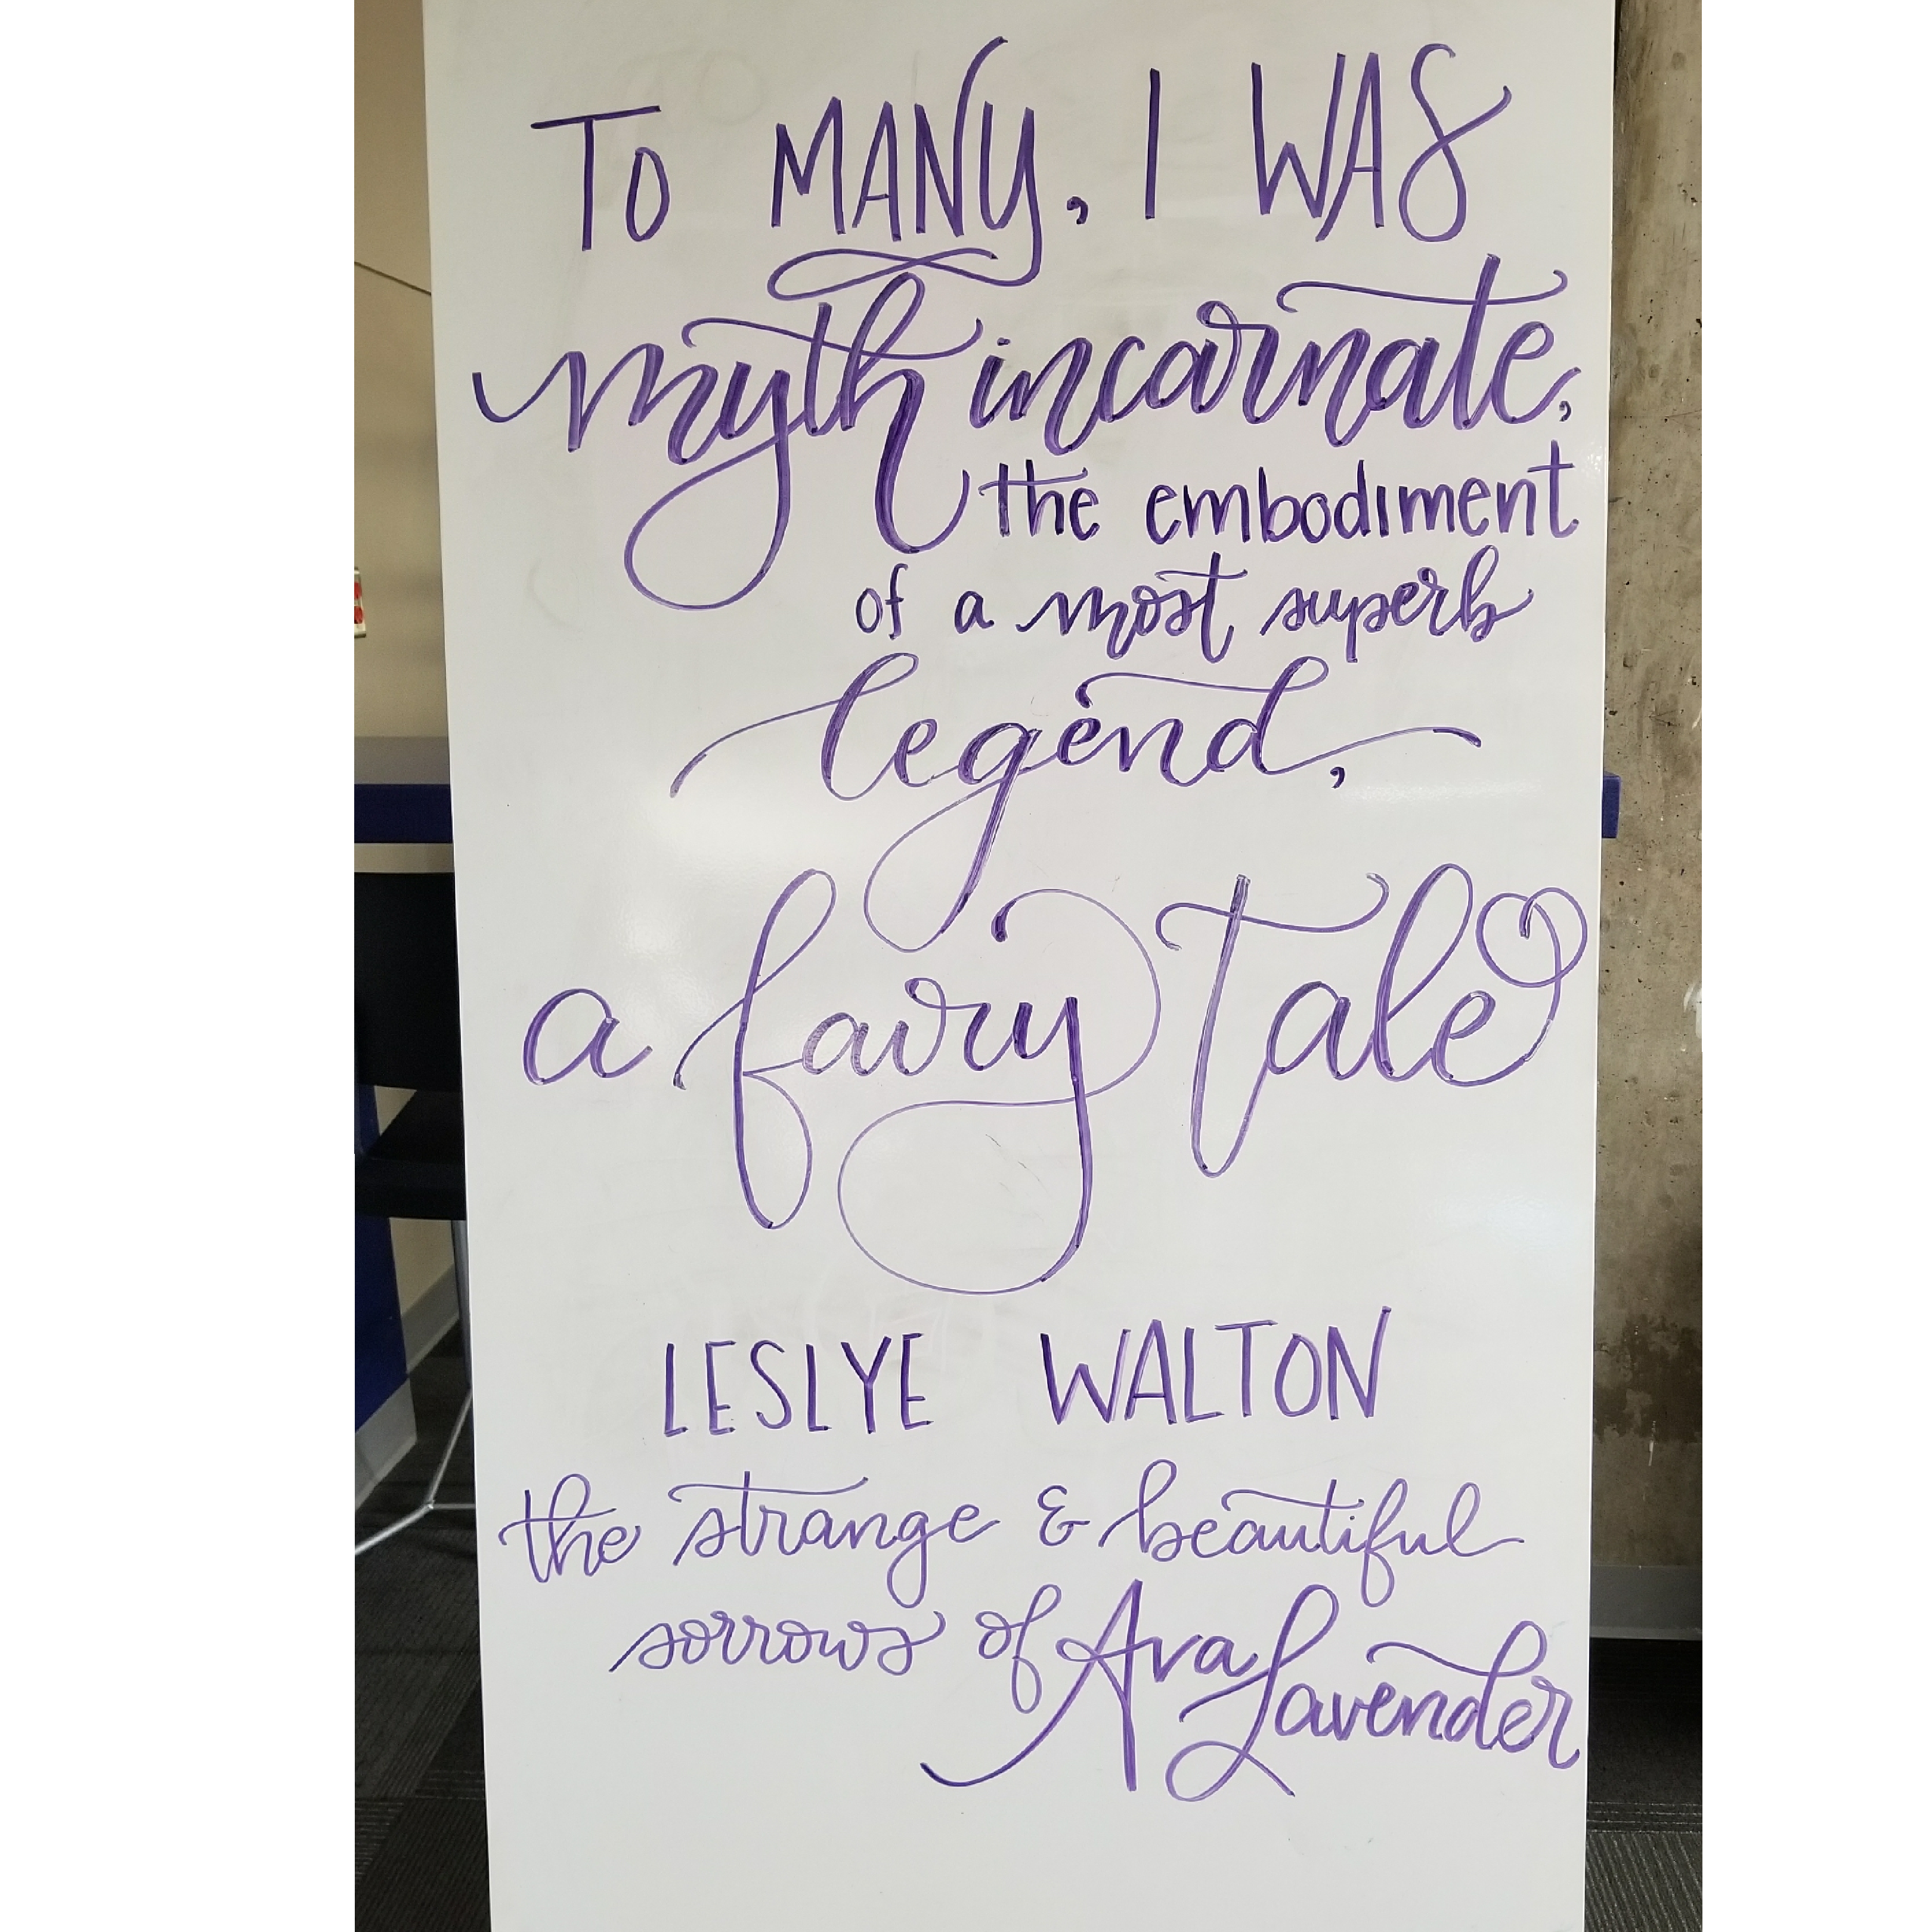 TO MANY, I WAS
myth incarnate,
the embodiment
of a most superb
legend,
a fairy tale
LESLYE WALTON
the strange & beautiful
sorrows of Ava Lavender